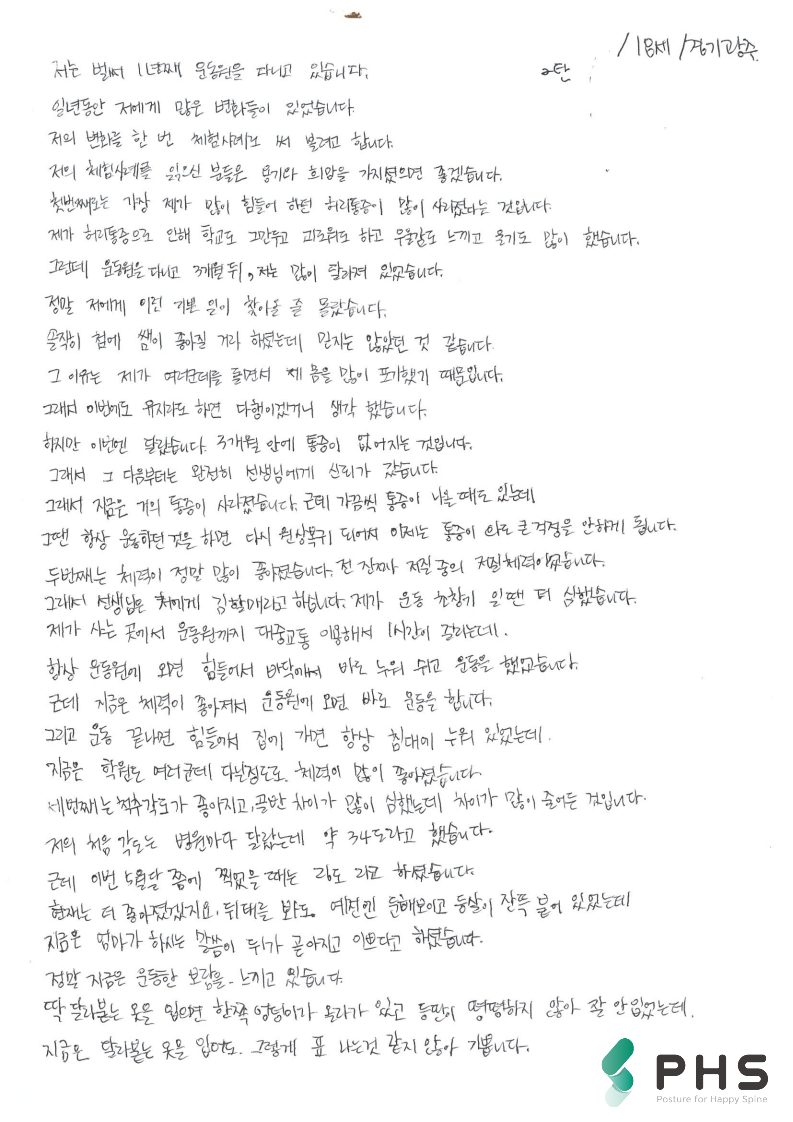 /18세/경기광주
2탄
저는 벌써 1년째 운동원을 다니고 있습니다.
일년동안 저에게 많은 변화들이 있었습니다.
저의 변화를 한 번 체험사례로 써 볼려고 합니다.
저의 체험사례를 읽으신 분들은 용기와 희망을 가지셨으면 좋겠습니다.
첫번째로는 가장 제가 많이 힘들어 하던 허리통증이 많이 사라졌다는 것입니다.
제가 허리통증으로 인해 학교도 그만두고 괴로워도 하고 우울감도 느끼고 울기도 많이 했습니다.
그런데 운동원을 다니고 3개월 뒤, 저는 많이 달라져 있었습니다.
정말 저에게 이런 기쁜 일이 찾아올 줄 몰랐습니다.
솔직히 첨에 쌤이 좋아질 거라 하셨는데 믿지는 않았던 것 같습니다.
그 이유는 제가 여러군데를 돌면서 제 몸을 많이 포기했기 때문입니다.
그래서 이번에도 유지라도 하면 다행이겠거니 생각 했습니다.
하지만 이번엔 달랐습니다. 3개월 안에 통증이 없어지는 것입니다.
그래서 그 다음부터는 완전히 선생님에게 신뢰가 갔습니다.
그래서 지금은 거의 통증이 사라졌습니다. 근데 가끔씩 통증이 나올 때도 있는데
그땐 항상 운동하던 것을 하면 다시 원상복귀 되어서 이제는 통증이 와도 큰 걱정을 안하게 됩니다.
두번째는 체력이 정말 많이 좋아졌습니다. 전 진짜 저질 중의 저질체력이였습니다.
그래서 선생님은 저에게 김할매라고 하십니다. 제가 운동 초창기 일땐 더 심했습니다.
제가 사는 곳에서 운동원까지 대중교통 이용해서 1시간이 걸리는데.
항상 운동원에 오면 힘들어서 바닥에서 바로 누워 쉬고 운동을 했었습니다.
근데 지금은 체력이 좋아져서 운동원에 오면 바로 운동을 합니다.
그리고 운동 끝나면 힘들어서 집에 가면 항상 침대에 누워 있었는데.
지금은 학원도 여러군데 다닐정도로 체력이 많이 좋아졌습니다
세번째는 척추각도가 좋아지고, 골반 차이가 많이 심했는데 차이가 많이 줄어든 것입니다.
저의 처음 각도는 병원마다 달랐는데 약 34도라고 했습니다.
근데 이번 5월달 쯤에 찍었을 때는 라고 하셨습니다.
현재는 더 좋아졌겠지요. 뒤태를 봐도. 예전엔 둔해보이고 등살이 잔뜩 붙어 있었는데
지금은 엄마가 하시는 말씀이 뒤가 곧아지고 이쁘다고 하셨습니다.
정말 지금은 운동한 보람을 느끼고 있습니다.
딱 달라붙는 옷을 입으면 한쪽 엉덩이가 올라가 있고 등판이 평평하지 않아 잘 안입었는데.
지금은 달라붙는 옷을 입어도. 그렇게 표 나는것 같지 않아 기쁩니다.
PHS
Posture for Happy Spine